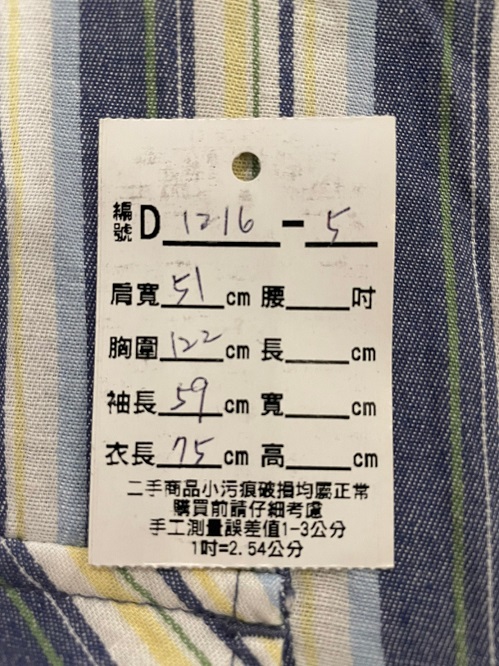 編號 D 1216 - 5
肩寬 51 cm 腰 吋
胸圍 122 cm 長 cm
袖長 59 cm 寬 cm
衣長 75 cm 高 cm
二手商品小污痕破損均屬正常
購買前請仔細考慮
手工測量誤差值1-3公分
1吋=2.54公分